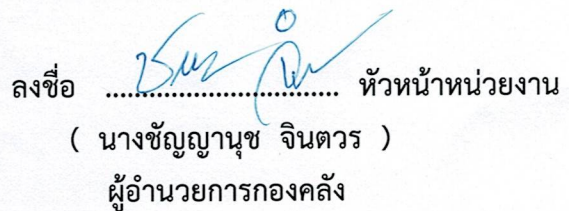 ลงชื่อ ........................................ หัวหน้าหน่วยงาน
( นางชัญญานุช จินตวร )
ผู้อำนวยการกองคลัง